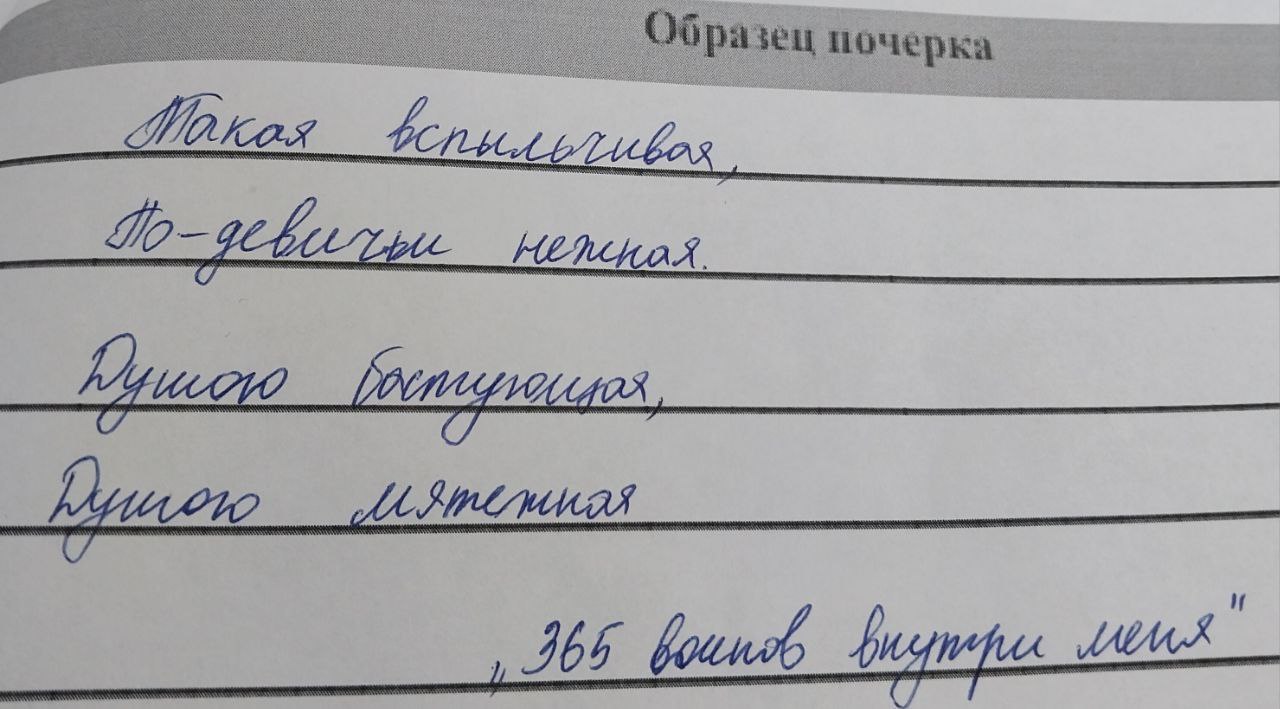 Образец почерка
Такая вспыльчивая,
По-девичьи нежная.
Душою бастующая,
Душою мятежная
„365 воинов внутри меня"